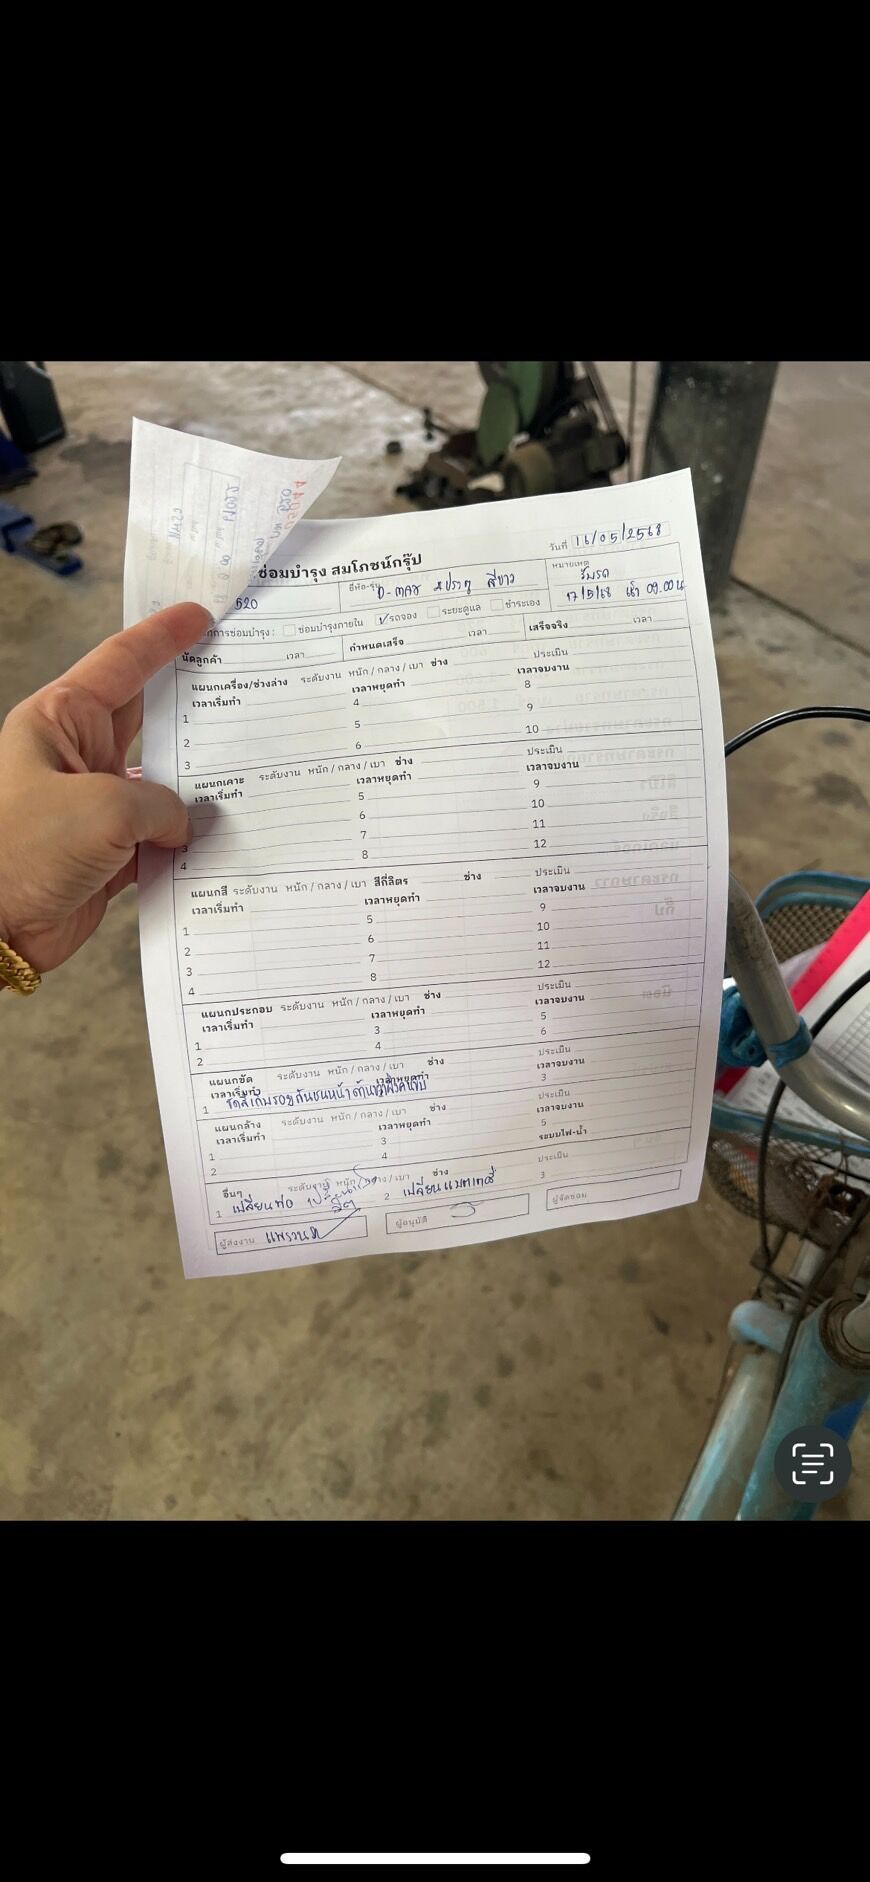 วันที่ 16/05/2568
ซ่อมบำรุง สมโภชน์กรุ๊ป
520
ยี่ห้อ-รุ่น D-max 4 ประตู สีขาว
หมายเหตุ
รับรถ
17/5/68 เช้า 09.00 น
การซ่อมบำรุง : ซ่อมบำรุงภายใน ✓ รถจอง ระยะดูแล ชำระเอง
นัดลูกค้า เวลา กำหนดเสร็จ เวลา เสร็จจริง เวลา
แผนกเครื่อง/ช่วงล่าง ระดับงาน หนัก / กลาง / เบา ช่าง ประเมิน
เวลาเริ่มทำ เวลาหยุดทำ เวลาจบงาน
1 4 8
2 5 9
3 6 10
แผนกเคาะ ระดับงาน หนัก / กลาง / เบา ช่าง ประเมิน
เวลาเริ่มทำ เวลาหยุดทำ เวลาจบงาน
5 9
6 10
3 7 11
4 8 12
แผนกสี ระดับงาน หนัก / กลาง / เบา สีกี่ลิตร ช่าง ประเมิน
เวลาเริ่มทำ เวลาหยุดทำ เวลาจบงาน
1 5 9
2 6 10
3 7 11
4 8 12
แผนกประกอบ ระดับงาน หนัก / กลาง / เบา ช่าง ประเมิน
เวลาเริ่มทำ เวลาหยุดทำ เวลาจบงาน
1 3 5
2 4 6
แผนกขัด ระดับงาน หนัก / กลาง / เบา ช่าง ประเมิน
เวลาเริ่มทำ เวลาหยุดทำ เวลาจบงาน
1 3
แผนกล้าง ระดับงาน หนัก / กลาง / เบา ช่าง ประเมิน
เวลาเริ่มทำ เวลาหยุดทำ เวลาจบงาน
1 3 5
2 4 ระบบไฟ-น้ำ
อื่นๆ ระดับงาน หนัก / กลาง / เบา ช่าง ประเมิน
1 เปลี่ยนท่อ 2 เปลี่ยนแบตเตอรี่ 3
ผู้ส่งงาน ผู้อนุมัติ ผู้จัดซ่อม